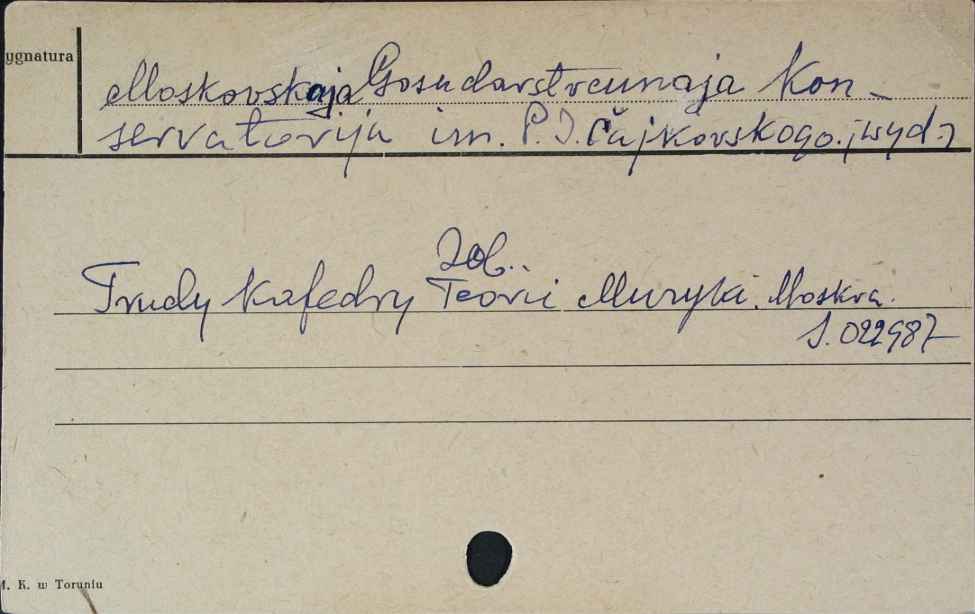 ygnatura
Moskovskaja Gosudarstvennaja Kon-
servatorija im. P. I. Čajkovskogo. [wyd.]
Zob.
Trudy Kafedry Teorii Muzyki. Moskva.
S. 022987
M. K. w Toruniu